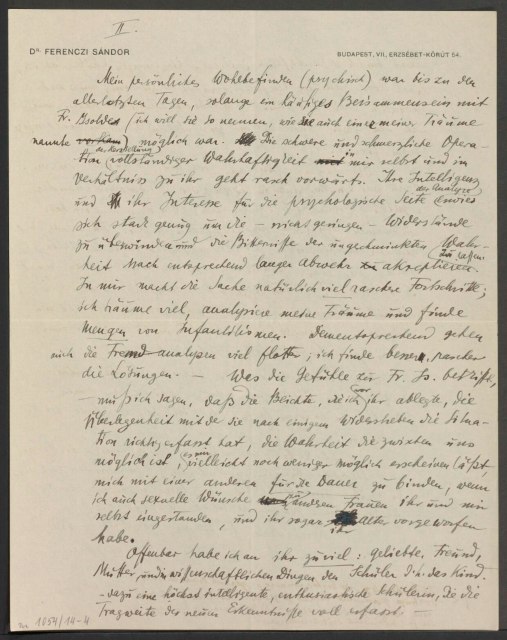 II.
Dr. FERENCZI SÁNDOR
BUDAPEST, VII., ERZSÉBET-KÖRÚT 54.
Mein persönliches Wohlbefinden (psychisch) war bis zu den
allerletzten Tagen, solange ein häufiges Beisammensein mit
Fr. Isolde (ich will sie so nennen, wie sie auch einer meiner Träume
nannte) möglich war. Die schwere und schmerzliche Opera-
tion der Herstellung vollständiger Wahrhaftigkeit in mir selbst und im
Verhältniss zu ihr geht rasch vorwärts. Ihre Intelligenz
und ihr Interesse für die psychologische Seite der Analyse erwies
sich stark genug um die – nicht geringen – Widerstände
zu überwinden und die Bitternisse der ungeschminkten Wahr-
heit nach entsprechend langer Abwehr akzeptieren zu lassen.
In mir macht die Sache natürlich viel raschere Fortschritte;
ich träume viel, analysiere meine Träume und finde
Mengen von Infantilismen. Dementsprechend gehen
auch die Fremdanalysen viel flotter; ich finde besser, rascher
die Lösungen. – Was die Gefühle zur Fr. Is. betrifft,
– muss ich sagen, daß die Beichte, die ich vor ihr ablegte, die
Überlegenheit mit der sie nach einigem Widerstreben die Situa-
tion richtig erfasst hat, die Wahrheit die zwischen uns
möglich ist, es mir vielleicht noch weniger möglich erscheinen lässt
mich mit einer anderen für die Dauer zu binden, wenn
ich auch sexuelle Wünsche zu anderen Frauen ihr und mir
selbst eingestanden, und ihr sogar ihr Alter vorgeworfen
habe.
Offenbar habe ich an ihr zu viel: Geliebte, Freund,
Mutter, und in wissenschaftlichen Dingen den Schüler d.h. das Kind.
– dazu eine höchst intelligente, enthusiastische Schülerin, die die
Tragweite der neuen Erkenntnisse voll erfasst. –
1054/14-4